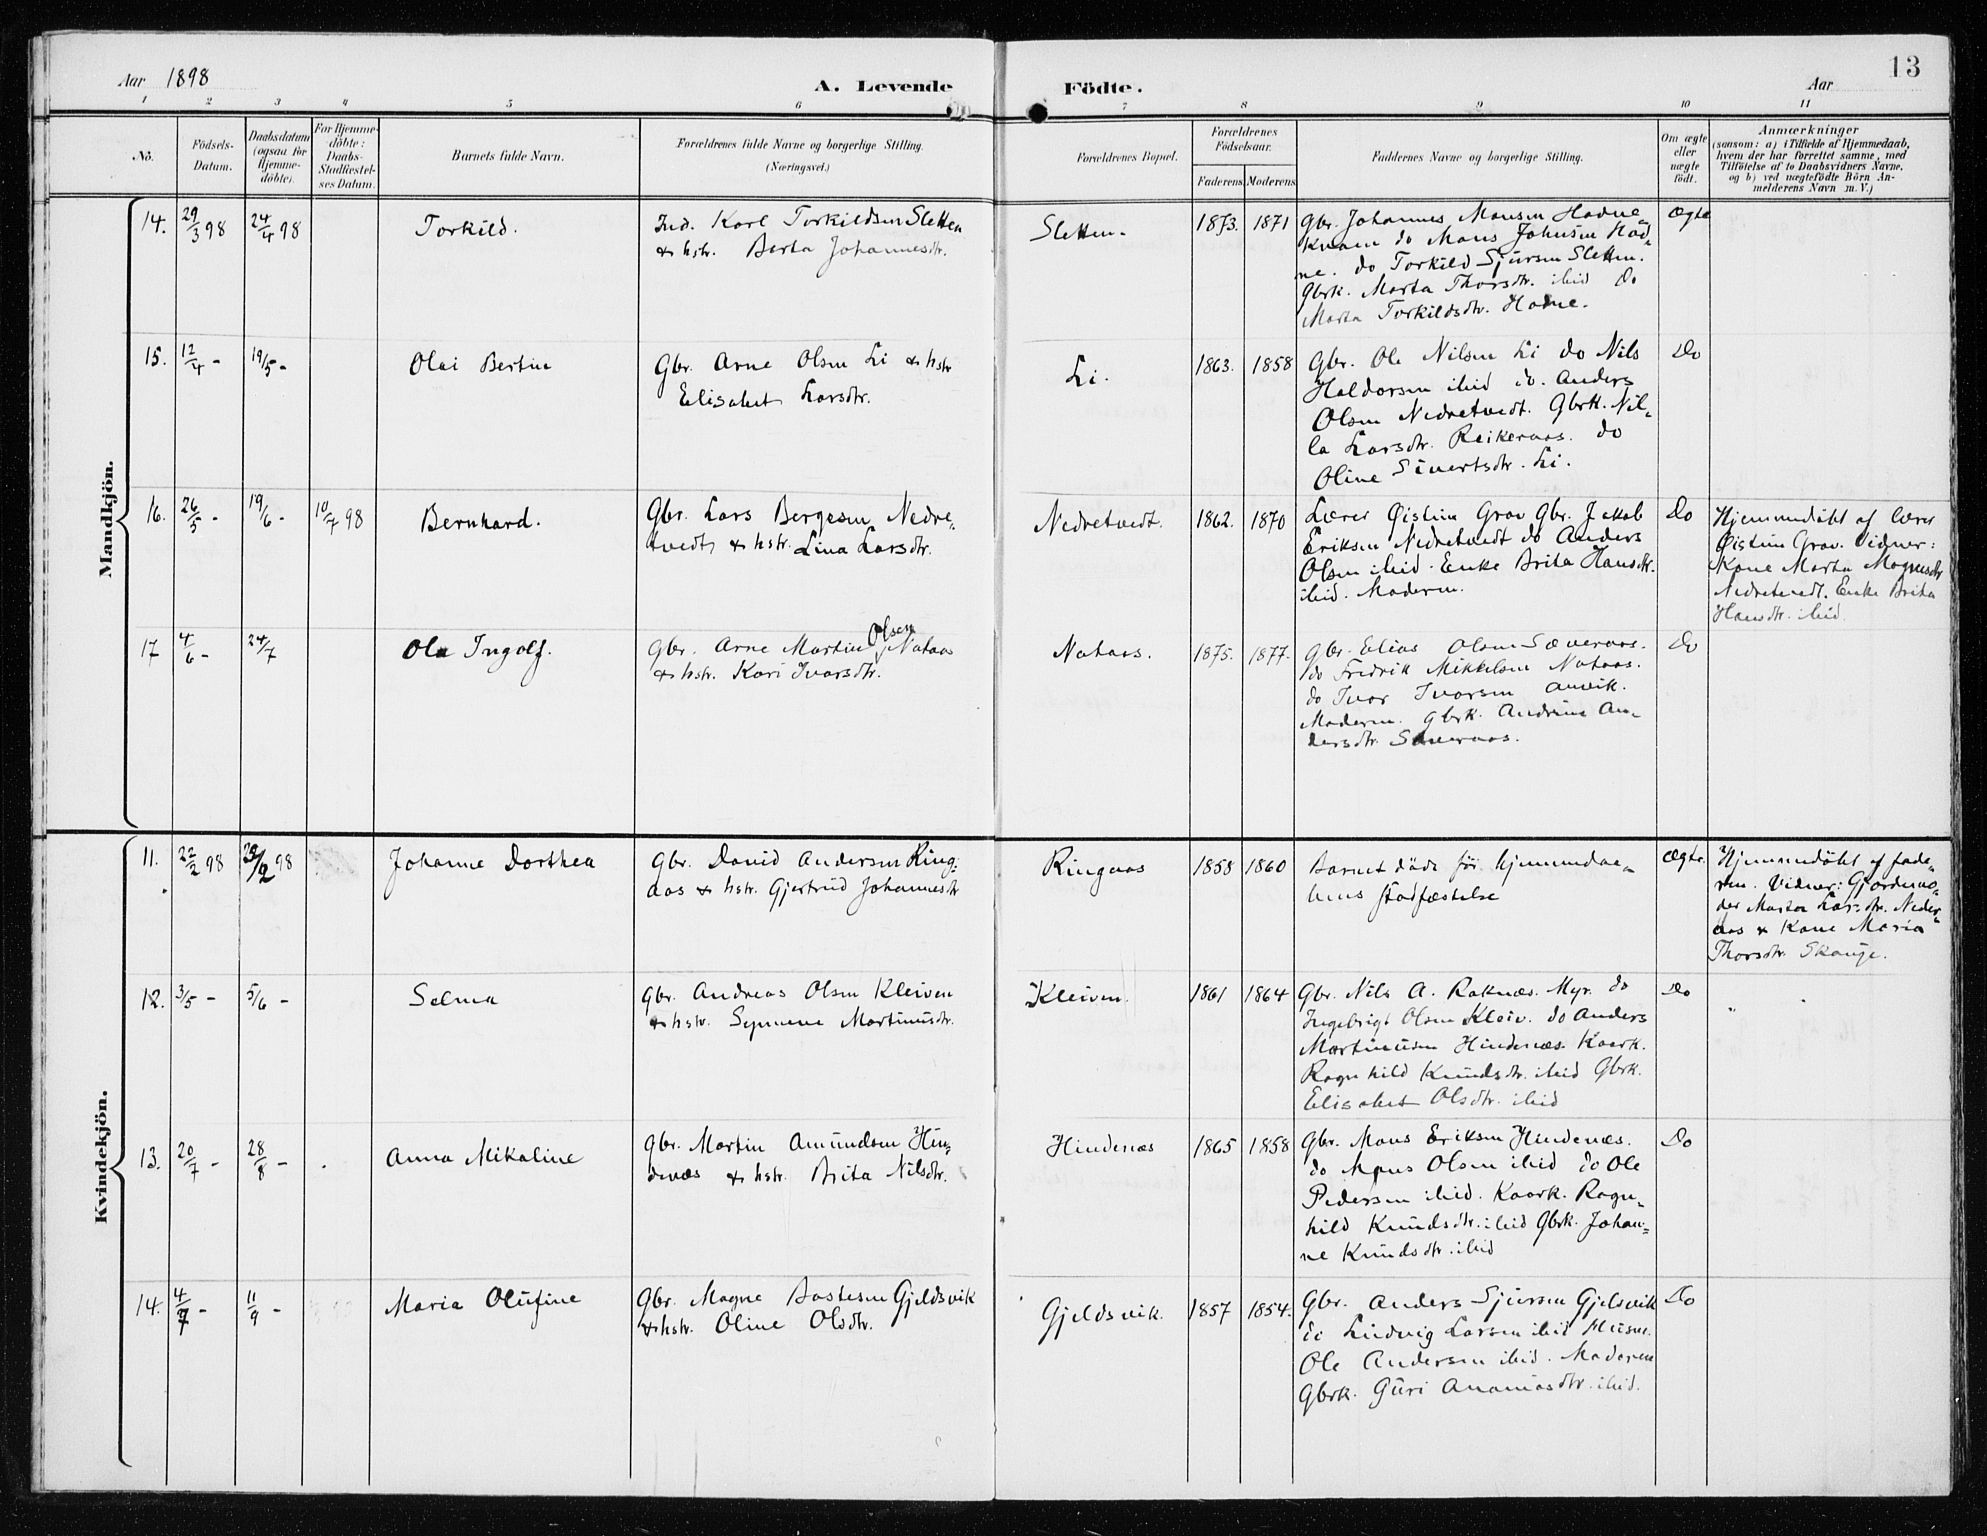 Aar 1898
A. Levende
Födte.
Aar
13
1 2 3 4 5 6 7 8 9 10 11
No.
Födsels-
Datum.
Daabsdatum
(ogsaa for
Hjemme-
döbte).
For Hjemme-
döbte:
Daabs-
Stadfæstel-
ses Datum.
Barnets fulde Navn.
Forældrenes fulde Navne og borgerlige Stilling.
(Næringsvei.)
Forældrenes Bopæl.
Forældrenes
Födselsaar.
Faderens Moderens
Faddernes Navne og borgerlige Stilling.
Om ægte
eller
uægte
födt.
Anmærkninger
(saasom: a) i Tilfælde af Hjemmedaab,
hvem der har forrettet samme, med
Tilföielse af to Daabsvidners Navne,
og b) ved uægtefödte Börn An-
melderens Navn m. V.)
Mandkjön.
14. 29/3 98 24/4 98
Torkild.
Ind. Karl Torkildsen Sletten
& hstr. Berta Johannesdtr.
Sletten.
1873. 1871
Gbr. Johannes Monsen Hodne-
kvam do Mons Johnsen Hod-
ne. do Torkild Sjursen Sletten.
Gbrk. Marta Thorsdtr. ibid Do
Marta Torkildsdtr. Hodne.
Ægte
15. 12/4 - 19/5 -
Olai Bertin
Gbr. Arne Olsen Li & hstr
Elisabet Larsdtr.
Li.
1863. 1858
Gbr. Ole Nilsen Li do Nils
Haldorsen ibid do. Anders
Olsen Nedretvedt. Gbrk. Nil-
la Larsdtr. Reikeraas. do
Oline Sivertsdtr. Li.
Do
16. 26/5 - 19/6 - 10/7 98
Bernhard.
Gbr. Lars Bergesen Nedre-
tvedt & hstr. Lina Larsdtr.
Nedretvedt.
1862. 1870
Lærer Øistein Grov Gbr. Jakob
Eriksen Nedretvedt do Anders
Olsen ibid. Enke Brita Hansdtr.
ibid. Moderen.
Do
Hjemmedöbt af lærer
Øistein Grov. Vidner:
Kone Marta Magnesdtr
Nedretvedt. Enke Brita
Hansdtr. ibid.
17 4/6 - 24/7
Ola Ingolf.
Olsen
Gbr. Arne Martin Nataas
& hstr. Kari Ivarsdtr.
Nataas.
1875. 1877.
Gbr. Elias Olsen Sæveraas.
do Fredrik Mikkelsen Nataas.
do Ivar Ivarsen Anvik.
Moderen. Gbrk. Andrine An-
dersdtr Sæveraas.
Do
Kvindekjön.
11. 22/2 98 28/2 98
Johanne Dorthea
Gbr. David Andersen Ring-
aas & hstr. Gjertrud Johannesdtr
Ringaas
1858 1860
Barnet döde för hjemmedaa-
bens stadfæstelse
Ægte.
Hjemmedöbt af fade-
ren. Vidner: Gjordemo-
der Marta Larsdtr. Neder-
aas & Kone Maria
Thorsdtr. Skauge.
12. 3/5 - 5/6 -
Selma
Gbr. Andreas Olsen Kleiven
& hstr. Synneve Martinusdtr.
Kleiven.
1861 1864
Gbr. Nils A. Raknæs. Myr. do
Ingebrigt Olsen Kleiv. do Anders
Martinusen Hindenæs. Kaark.
Ragnhild Knudsdtr. ibid Gbrk.
Elisabet Olsdtr. ibid
Do
13. 20/7 - 28/8 -
Anna Mikaline
Gbr. Martin Amundsen Hin-
denæs & hstr. Brita Nilsdtr.
Hindenæs
1865 1858
Gbr. Mons Eriksen Hindenæs.
do Mons Olsen ibid do Ole
Pedersen ibid. Kaark. Ragn-
hild Knudsdtr. ibid Gbrk. Johan-
ne Knudsdtr. ibid
Do
14. 4/7 - 11/9 -
Maria Olufine
Gbr. Magne Bastesen Gjeldsvik
& hstr. Oline Olsdtr.
Gjeldsvik.
1857 1854.
Gbr. Anders Sjursen Gjelsvik
do Ludvig Larsen ibid Husm.
Ole Andersen ibid. Moderen
Gbrk. Guri Ananiasdtr. ibid.
Do